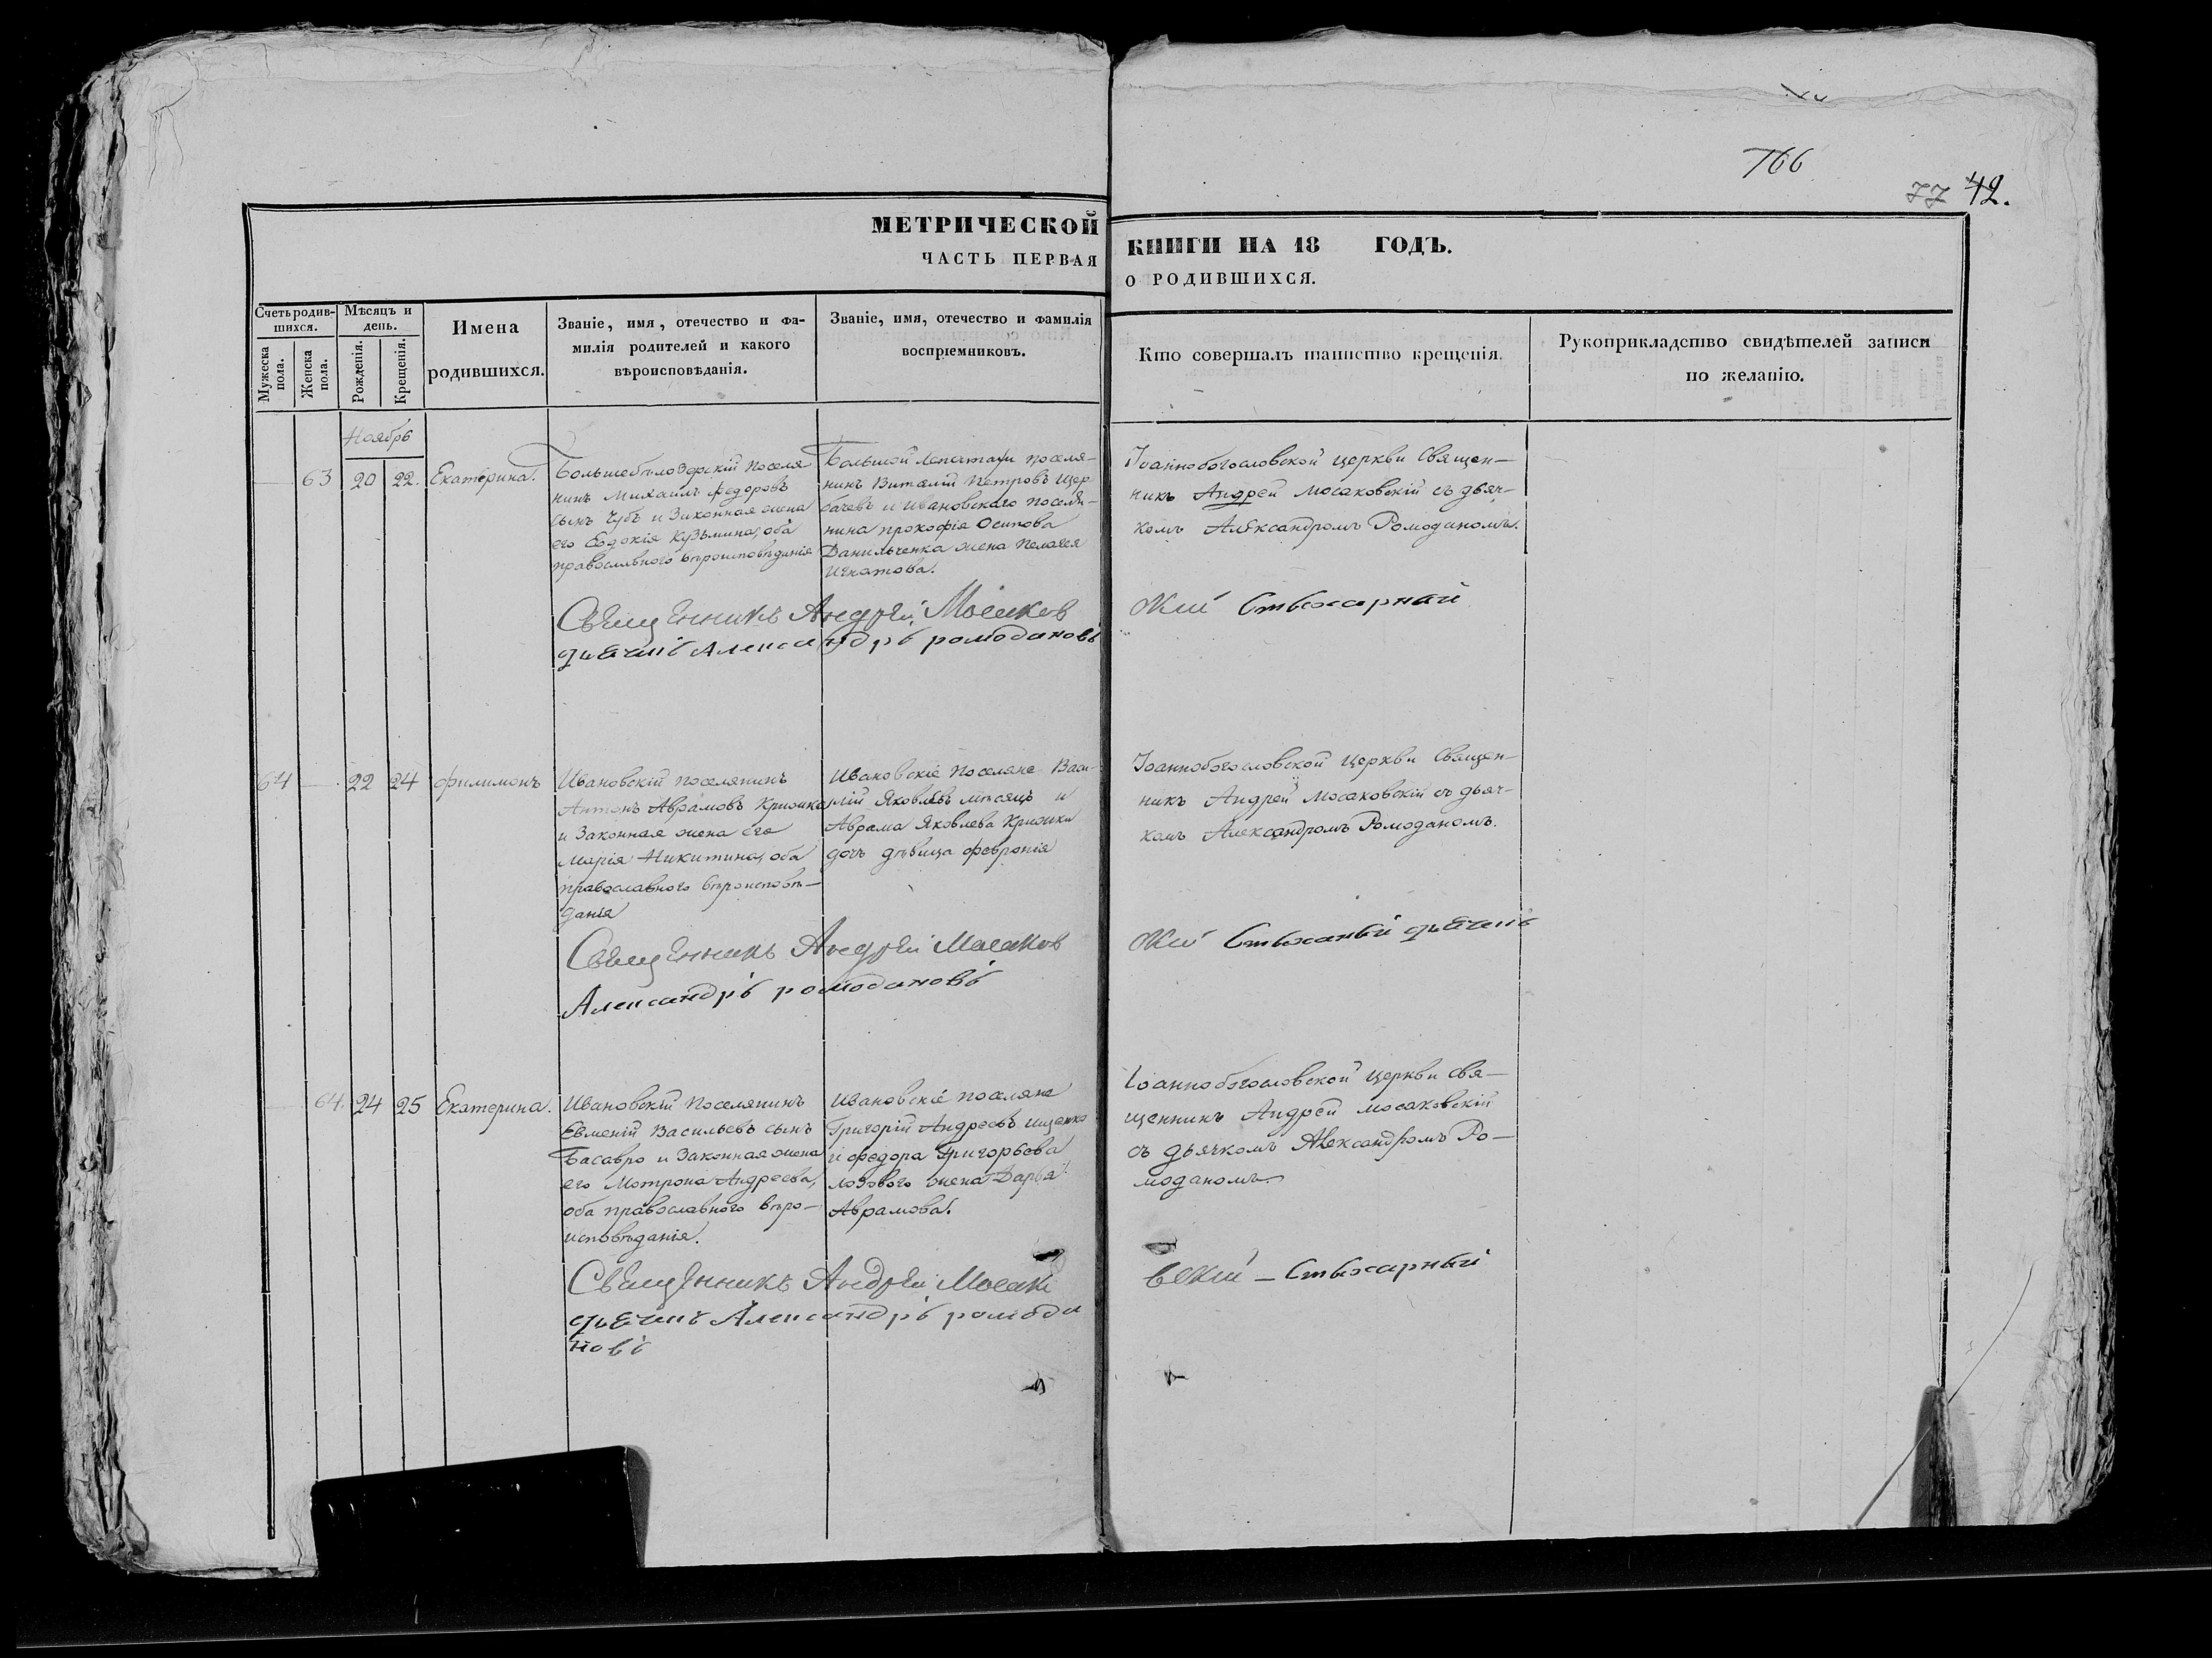 766
42.
МЕТРИЧЕСКОЙ
ЧАСТЬ ПЕРВАЯ
КНИГИ НА 18 ГОДЪ.
О РОДИВШИХСЯ.
Счетъ родив-
шихся.
Мужеска
пола.
Женска
пола.
Мѣсяцъ и
день.
Рожденія.
Крещенія.
Имена
родившихся.
Званіе, имя, отечество и фа-
милія родителей и какого
вѣроисповѣданія.
Званіе, имя, отечество и фамилія
воспріемниковъ.
Кто совершалъ таинство крещенія.
Рукоприкладство свидѣтелей записи
по желанію.
Ноябрь
63
20
22.
Екатерина.
Большебѣлозерскій поселя
нинъ Михаилъ Федоровъ
сынъ Чубъ и Законная жена
его Евдокія Кузьмина, оба
православного вѣроисповѣданія
Большой Лепетихи поселя-
нинъ Виталій Петровъ Щер
бачевъ и Ивановскаго поселя-
нина прокофія Осипова
Данильченка жена Пелагея
Игнатова.
Іоаннобогословской церкви Священ-
никъ Андрей Мосаковскій съ дьяч-
комъ Александромъ Ромоданомъ.
Священникъ Андрей Мосаков
ский Стихарный
дьячикъ Александръ ромодановъ
64
22
24
Филимонъ
Ивановскій поселянинъ
Антонъ Аврамовъ Крижка
и Законная жена его
Марія Никитина, оба
православного вѣроисповѣ-
данія
Ивановскіе поселяне Васи-
лій Яковлевъ Мѣсяцъ и
Аврама Яковлева Крижки
дочь дѣвица Февронія
Іоаннобогословской церкви Священ-
никъ Андрей Мосаковскій съ дьяч-
комъ Александромъ Ромоданомъ.
Священникъ Андрей Мосаков
ский Стихарный дьячикъ
Александръ ромодановъ
64.
24
25
Екатерина.
Ивановскій Поселянинъ
Евменій Васильевъ сынъ
Басавро и Законная жена
его Мотрона Андреева,
оба православного вѣро-
исповѣданія.
Ивановскіе поселяне
Григорій Андреевъ Ищенко
и Федора Григорьева
лозового жена Дарья
Аврамова.
Іоаннобогословской церкви свя-
щенникъ Андрей Мосаковскій
съ дьячкомъ Александромъ Ро-
моданомъ.
Священникъ Андрей Мосако
вский - Стихарный
дьячикъ Александръ ромода
новъ